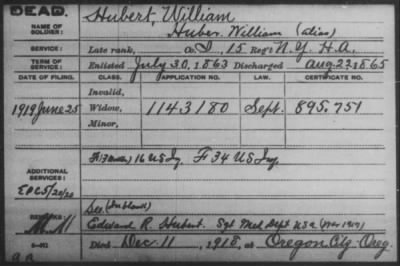 DEAD.
Hubert, William
NAME OF SOLDIER:
Huber, William (alias)
SERVICE:
Late rank, Co. I, 15 Reg't N.Y. H.A.
TERM OF SERVICE:
Enlisted July 30, 1863 Discharged Aug. 22, 1865
DATE OF FILING. CLASS. APPLICATION NO. LAW. CERTIFICATE NO.
Invalid,
1919 June 25 Widow, 1143180 Sept. 895,751
Minor,
ADDITIONAL SERVICES:
16 US Inf. F 34 US Inf.
REMARKS:
See
Edward R. Hubert. Sgt Med Dept USA
Died Dec. 11, 1918, at Oregon City Oreg.